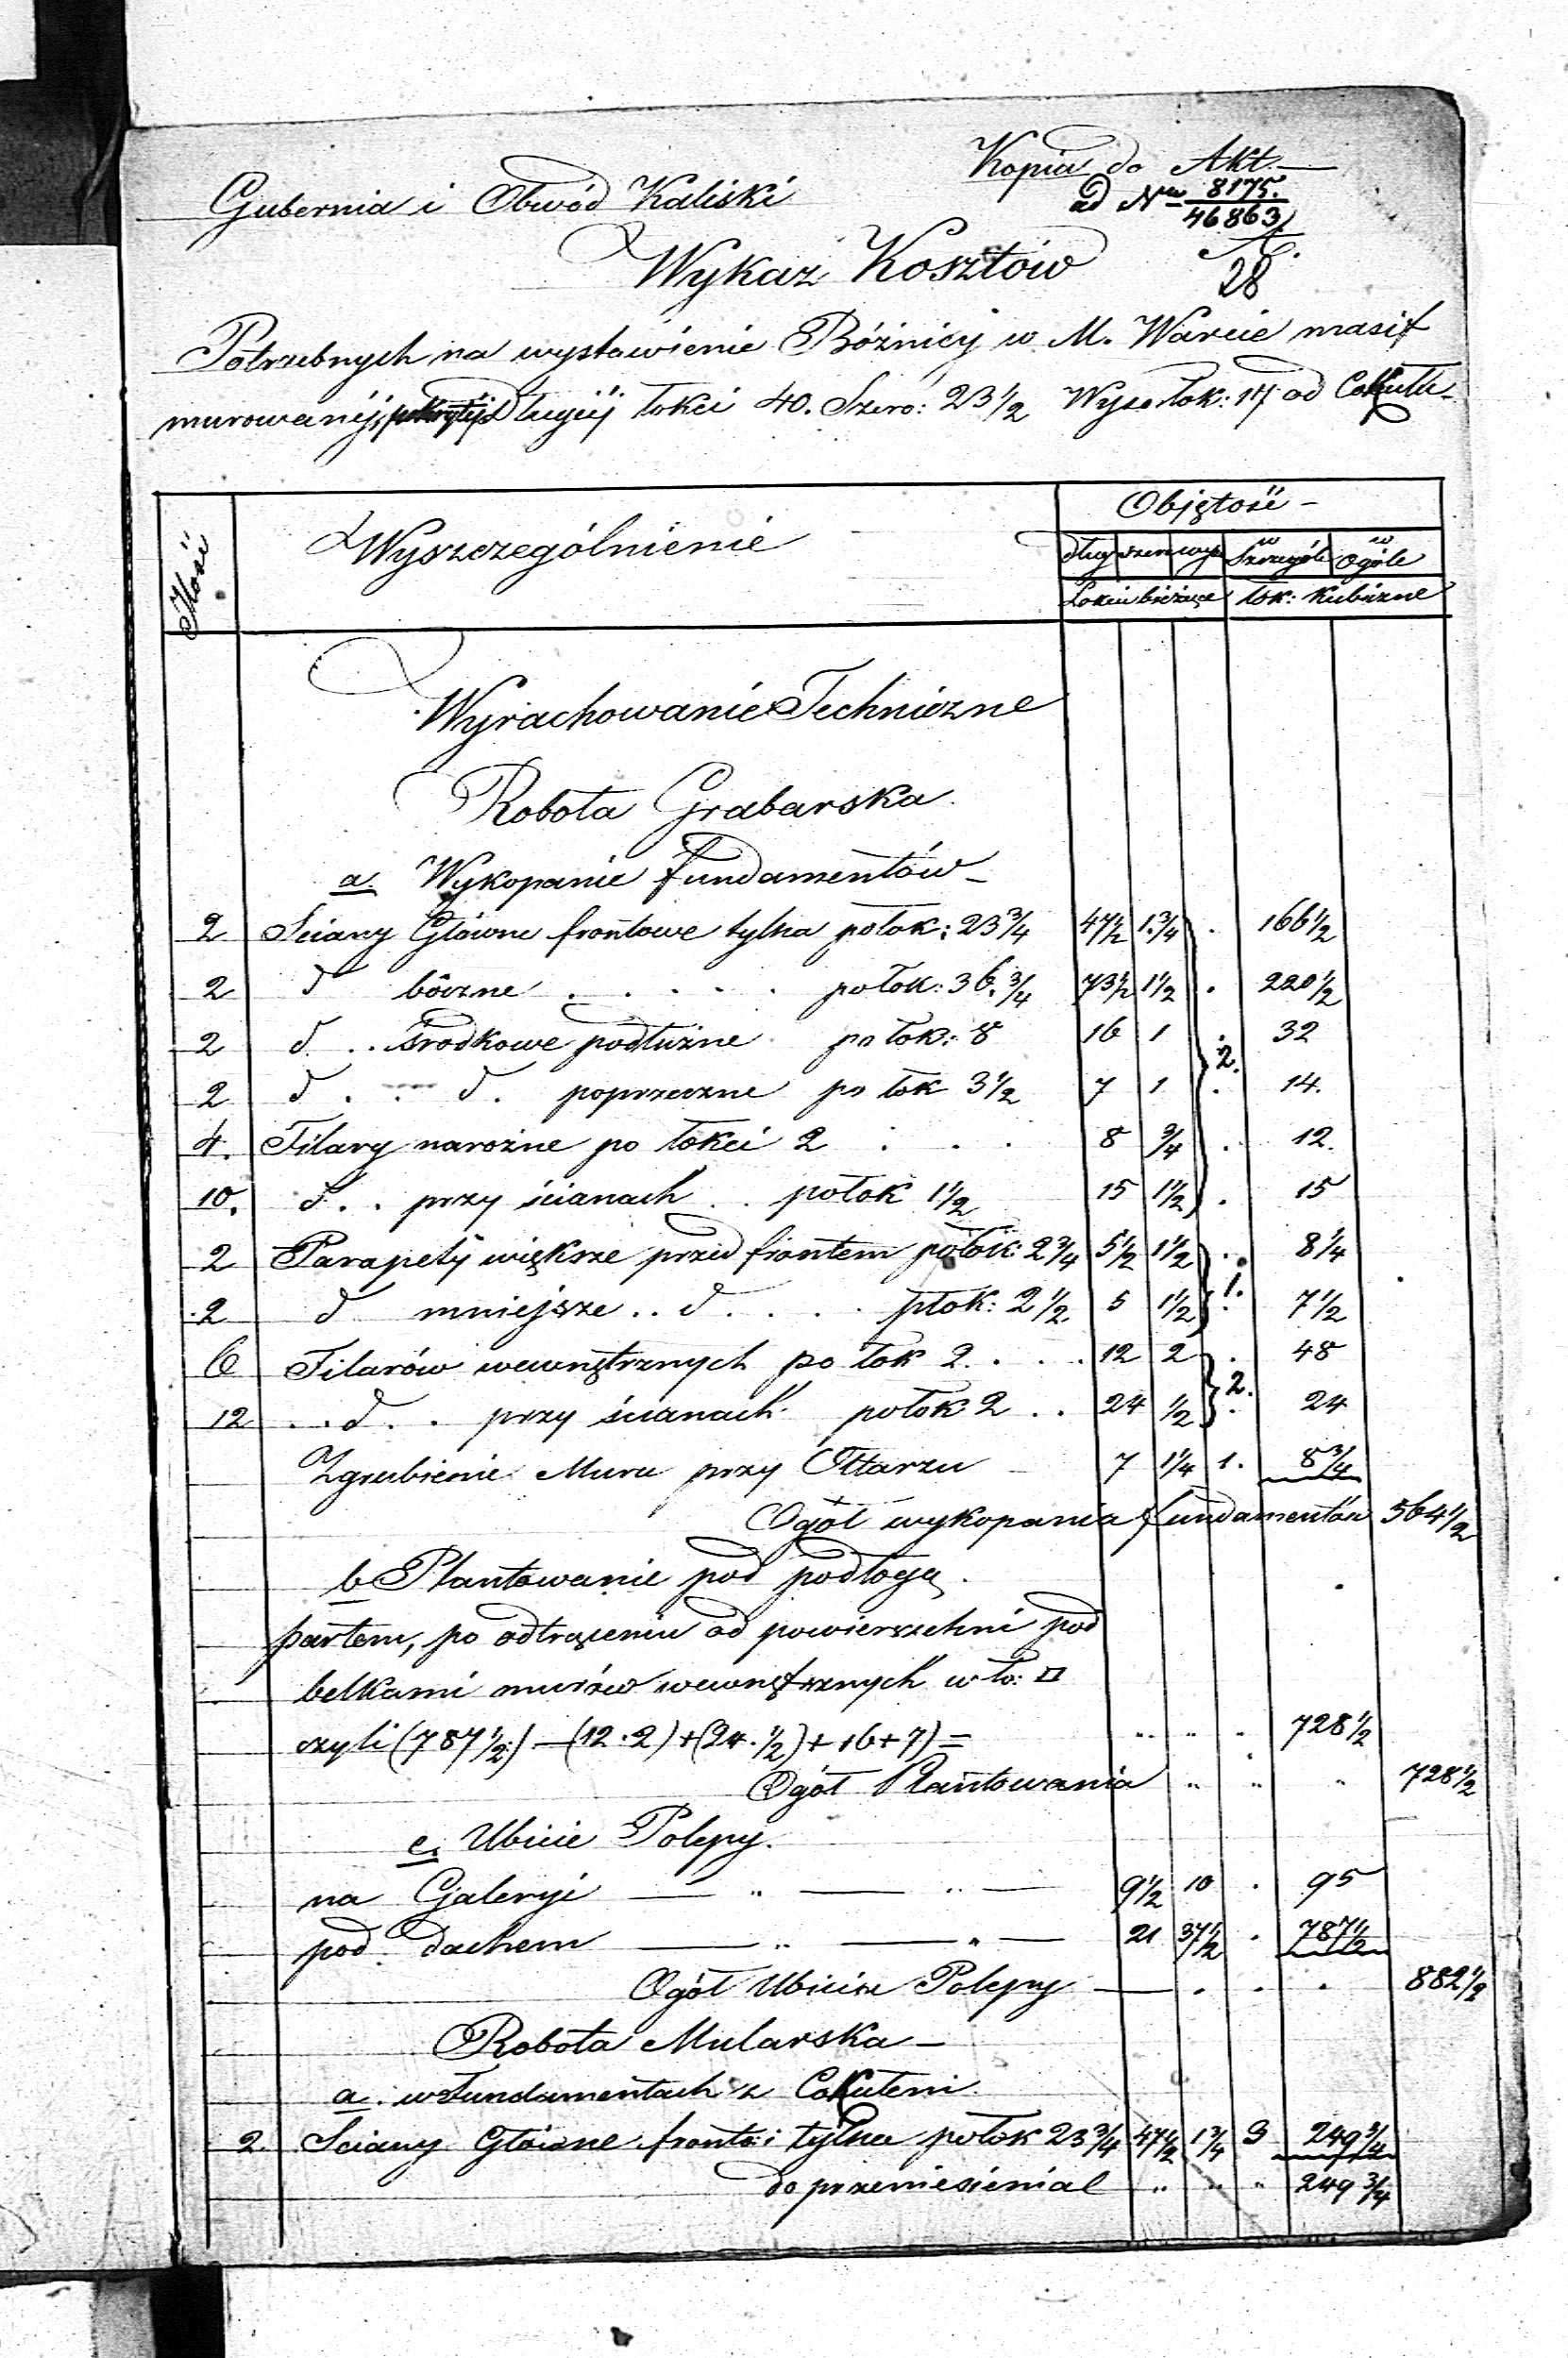 Kopia do Akt
Gubernia i Obwód Kaliski
ad Nro 8175.
46863
28
Wykaz Kosztów
Potrzebnych na wystawienie Bóźnicy w M. Warcie masif
murowanéj, długiéj łokci 40. Szero: 23 1/2 Wyso łok: 17 od Cokułu
Ilość Wyszczególnienie Objętość
dług szer wys w Szczególe w Ogóle
Łokcie bieżące łok: kubiczne
Wyrachowanie Techniczne
Robota Grabarska
a. Wykopanie fundamentów
2 Sciany Główne frontowe tylna po łok: 23 3/4 47 1/2 1 3/4 . 166 1/2
2 d bóczne . . . . . po łok: 36. 3/4 73 1/2 1 1/2 . 220 1/2
2 d . . środkowe podłużne po łok: 8 16 1 . 32
2.
2 d . . d . poprzeczne po łok 3 1/2 7 1 . 14.
4. Filary narożne po łokci 2 . . . 8 3/4 . 12.
10. d . . przy ścianach . . po łok 1 1/2 15 1 1/2 . 15
2 Parapety większe przed frontem po łok: 2 3/4 5 1/2 1 1/2 . 8 1/4
1.
2 d mniejsze . . d . . . . p łok: 2 1/2. 5 1 1/2 . 7 1/2
6 Filarów wewnętrznych po łok 2 . . . . 12 2 . 48
2.
12 . . d . . przy ścianach po łok 2 . . 24 1/2 . 24
Zgrubienie Muru przy Ołtarzu 7 1 1/4 1. 8 3/4
Ogół wykopania fundamentów 564 1/2
b Plantowanie pod podłogę.
partem, po odtrąceniu od powierzchni pod
belkami murów wewnętrznych w ło: □
czyli (787 1/2.) — (12.2) + (24. 1/2) + 16 + 7) = 728 1/2
Ogół Plantowania 728 1/2
c. Ubicie Polepy.
na Galeryi — " — " — 9 1/2 10 . 95
pod dachem — " — " — 21 37 1/2 . 787 1/2
Ogół Ubicia Polepy — . . . 882 1/2
Robota Mularska —
a. w Fundamentach z Cokułem
2. Sciany Główne fronto: i tylna po łok 23 3/4 47 1/2 1 3/4 3 249 3/4
do przeniesienia " " " 249 3/4